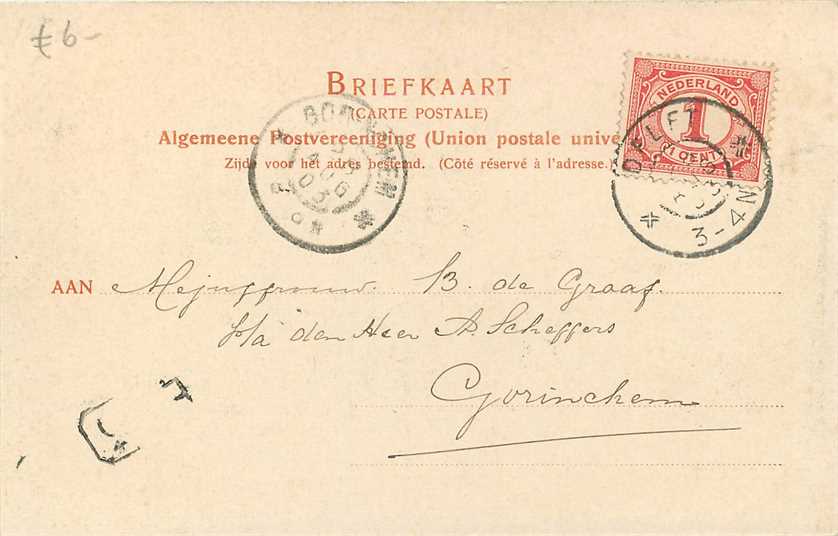 £6-
BRIEFKAART
(CARTE POSTALE)
Algemeene Postvereeniging (Union postale unive
Zijde voor het adres bestemd. (Côté réservé à l'adresse.
NEDERLAND
1
CENT
DELFT
3-4 N
AAN Mejuffrouw B. de Graaf.
p/a den Heer A. Scheffers
Gorinchem